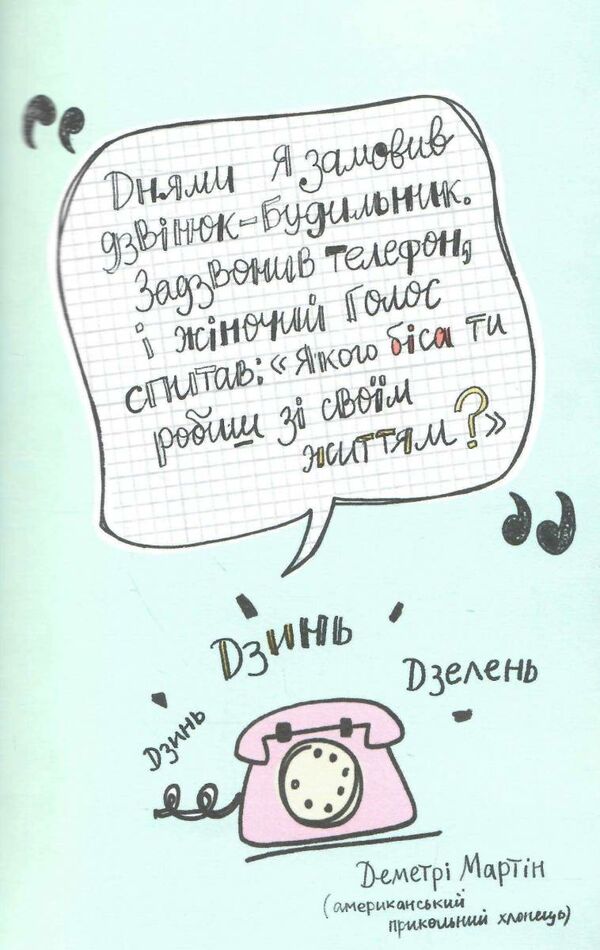 Днями я замовив
дзвінок-будильник.
Задзвонив телефон,
і жіночий голос
спитав: «Якого біса ти
робиш зі своїм
життям?»
Дзинь
Дзелень
Дзинь
Деметрі Мартін
(американський
прикольний хлопець)